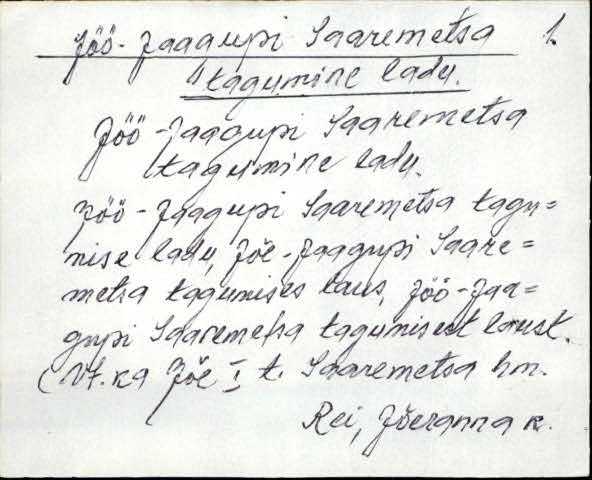 Jöö-Jaagupi Saaremetsa 1.
tagumine ladu.
Jöö-Jaagupi Saaremetsa
tagumine ladu.
Jöö-Jaagupi Saaremetsa tagu=
mise ladu, Jõe-Jaagupi Saare=
metsa tagumises laus, Jöö-Jaa=
gupi Saaremetsa tagumisest laust.
(Vt. ka Jõe I t. Saaremetsa hm.
Rei, Jõeranna k.